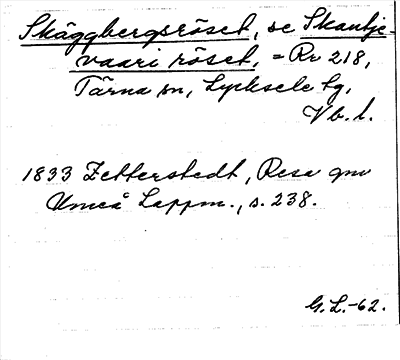 Skäggbergsröset, se Skautje-
vaari röset, = Rr 218,
Tärna sn, Lycksele lg,
Vb. l.
1833 Zetterstedt, Resa gm
Umeå Lappm., s. 238.
G. L. -62.